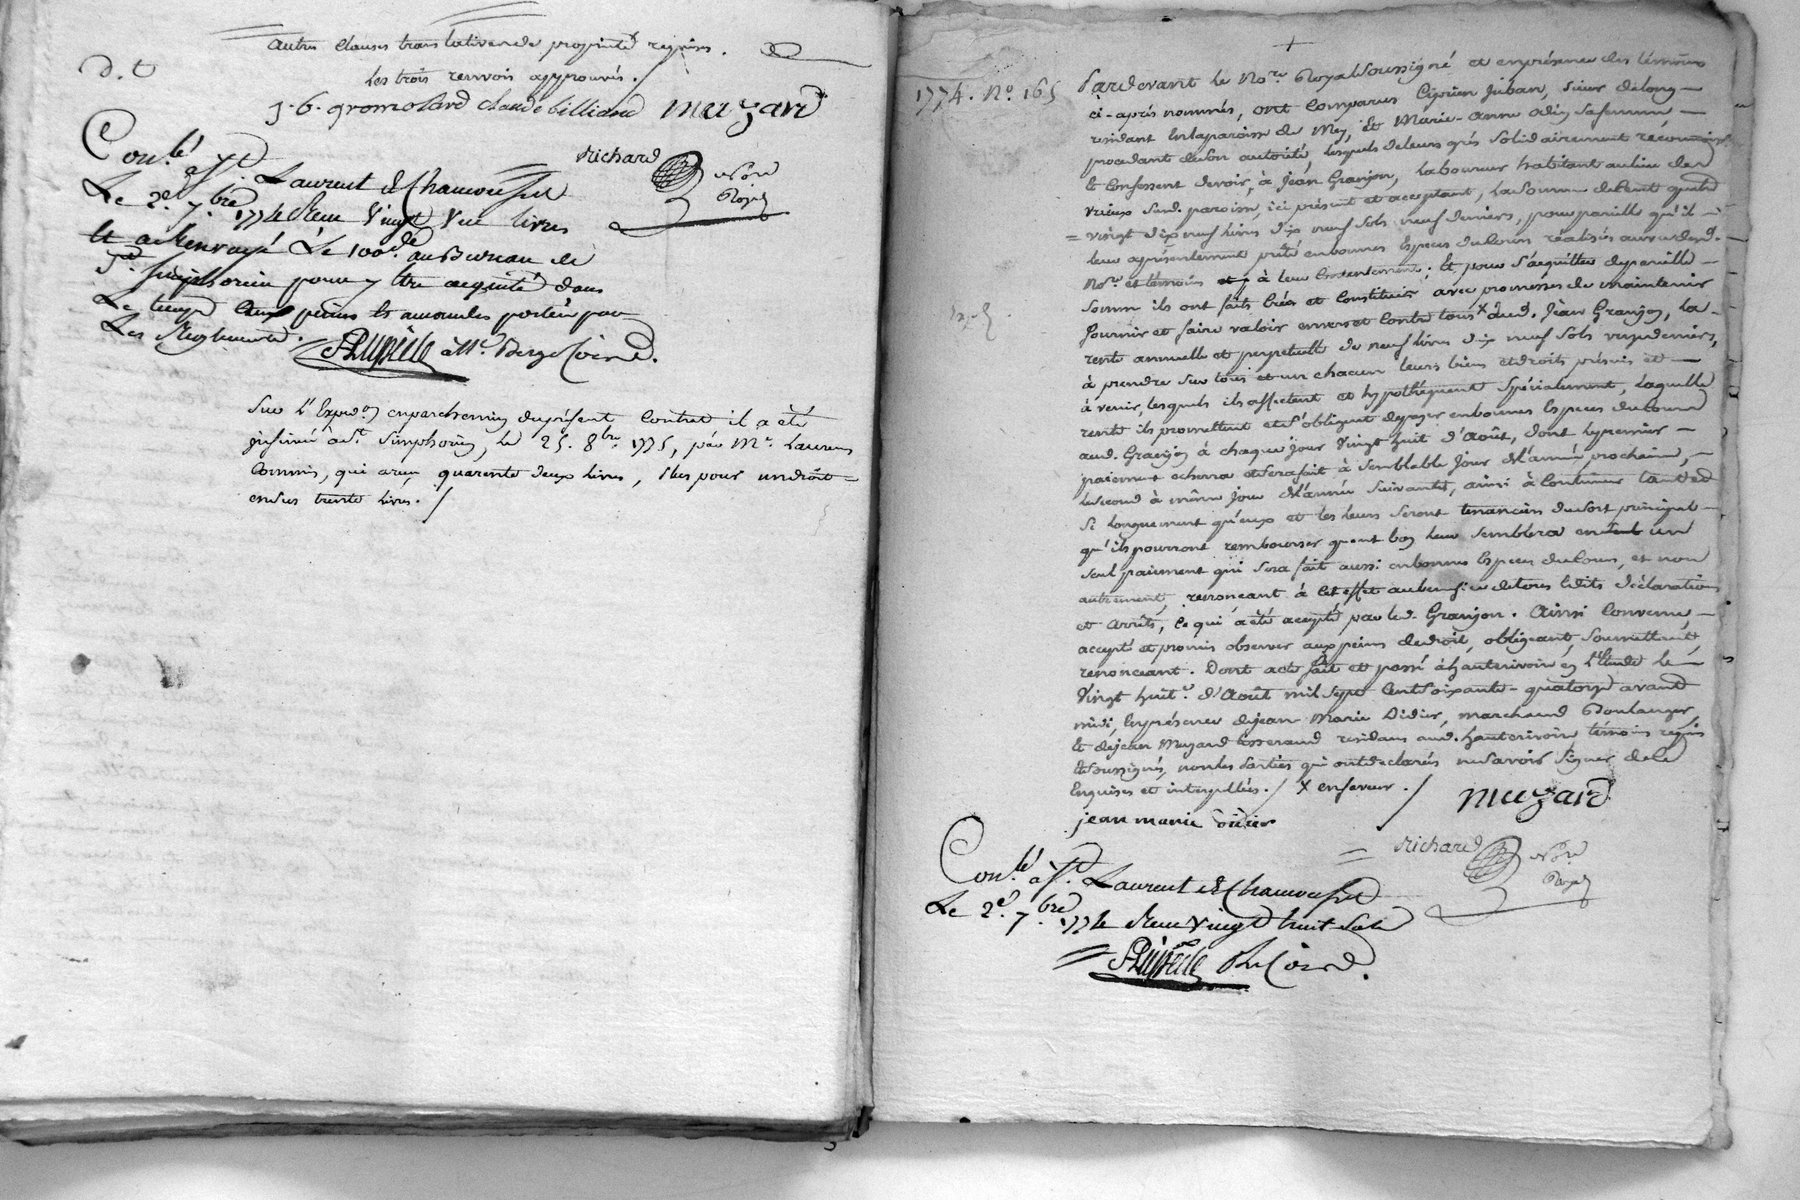 autres clauses translatives de propriété requises.
les trois renvois approuvés./
D. t
J. B. gromolard claude billiard muzard
Richard Nore
Royal
Con.lé à St. Laurent de Chamousset
Le 2e. 7.bre 1774 Reçu Vingt Une livres
et ai renvoyé Le 100e. de au Bureau de
St. Simphorien pour y être acquitté dans
Le temps Ceux peines et amendes portées par
Les Reglements.
a Mr. Berge
Sur l'Expedon en parchemin du présent Contrat il a été
insinué à St. Simphorien, le 25. 8bre. 1775, par Mr. Laurens
Commis, qui a reçu quarente deux livres, plus pour un droit =
en sus trente livres./
1774. No. 165
Pardevant le Nore. Royal Soussigné et en présence des témoins
ci-après nommés, ont comparus Ciprien Juban, sieur de long —
résidant en la paroisse de Mey, et Marie-Anne Odin sa femme —
procedant de son autorité, lesquels de leurs grés solidairement reconnoiss
et Confessent devoir, à Jean Granjon, laboureur habitant au lieu de
Vrieux susd. paroisse, ici présent et acceptant, la somme de Cent quatre
= vingt dix neuf livres dix neuf sols neuf deniers, pour pareille qu'il —
leur a présentement prêté en bonnes Espèces du Cours réalisés au vu dud.
Nore. et témoins et à leur Contentement; Et pour s'acquitter de pareille —
somme ils ont faits créés et Constitués avec promesses de maintenir
fournir et faire valoir envers et Contre tous x dud. Jean Granjon, la -
rente annuelle et perpetuelle de neuf livres dix neuf sols deniers,
à prendre sur tous et un chacun leurs biens et droits présens et —
à venir, lesquels ils affectent et hypothèquent spécialement, laquelle
rente ils promettent et s'obligent de payer en bonnes Espèces du Cours
aud. Granjon à chaque jour Vingt huit d'Août, dont le premier —
paiement echerra et sera fait à semblable jour de l'année prochaine, —
le second à même jour de l'année suivante, ainsi à Continuer tant et
si longuement qu'eux et les leurs seront tenanciers du sort principal —
qu'ils pourront rembourser quant bon leur semblera en un
seul paiement qui sera fait aussi en bonnes Espèces du Cours, et non
autrement, renonçant à Cet effet au benefice de tous Edits déclarations
et Arrêts, Ce qui a été accepté par led. Granjon. Ainsi Convenu, —
accepté et promis observer aux peines de droit, obligeant, soumettant,
renonceant. Dont acte fait et passé à hauterivoire en l'Etude le —
Vingt huite. d'Août mil sept Cent soixante-quatorze avant
midi, En présence de jean Marie Didier, marchand Boulanger
et de jean Muzard tisserand residans aud. hauterivoire témoins requis
et soussignés, non les Parties qui ont declarés ne savoir signer de ce
Enquises et interpellées./ x en faveur./
muzard
jean marie didier
Richard Nore
Royal
Con.lé à St. Laurent de Chamousset
Le 2e. 7.bre 1774 Reçu Vingt huit Sols